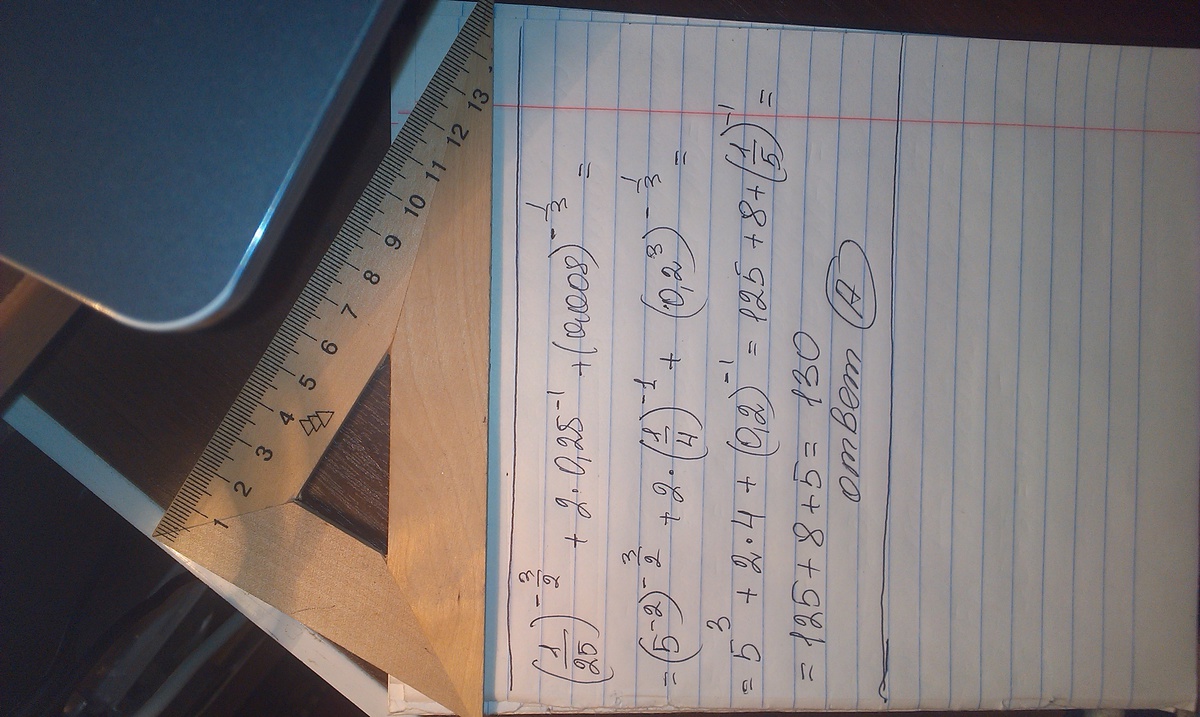 (1/25)^(-3/2) + 2·0,25^(-1) + (0,008)^(-1/3) =
= (5^(-2))^(-3/2) + 2·(1/4)^(-1) + (0,2^3)^(-1/3) =
= 5^3 + 2·4 + (0,2)^(-1) = 125 + 8 + (1/5)^(-1) =
= 125 + 8 + 5 = 130
ответ А
1 2 3 4 5 6 7 8 9 10 11 12 13